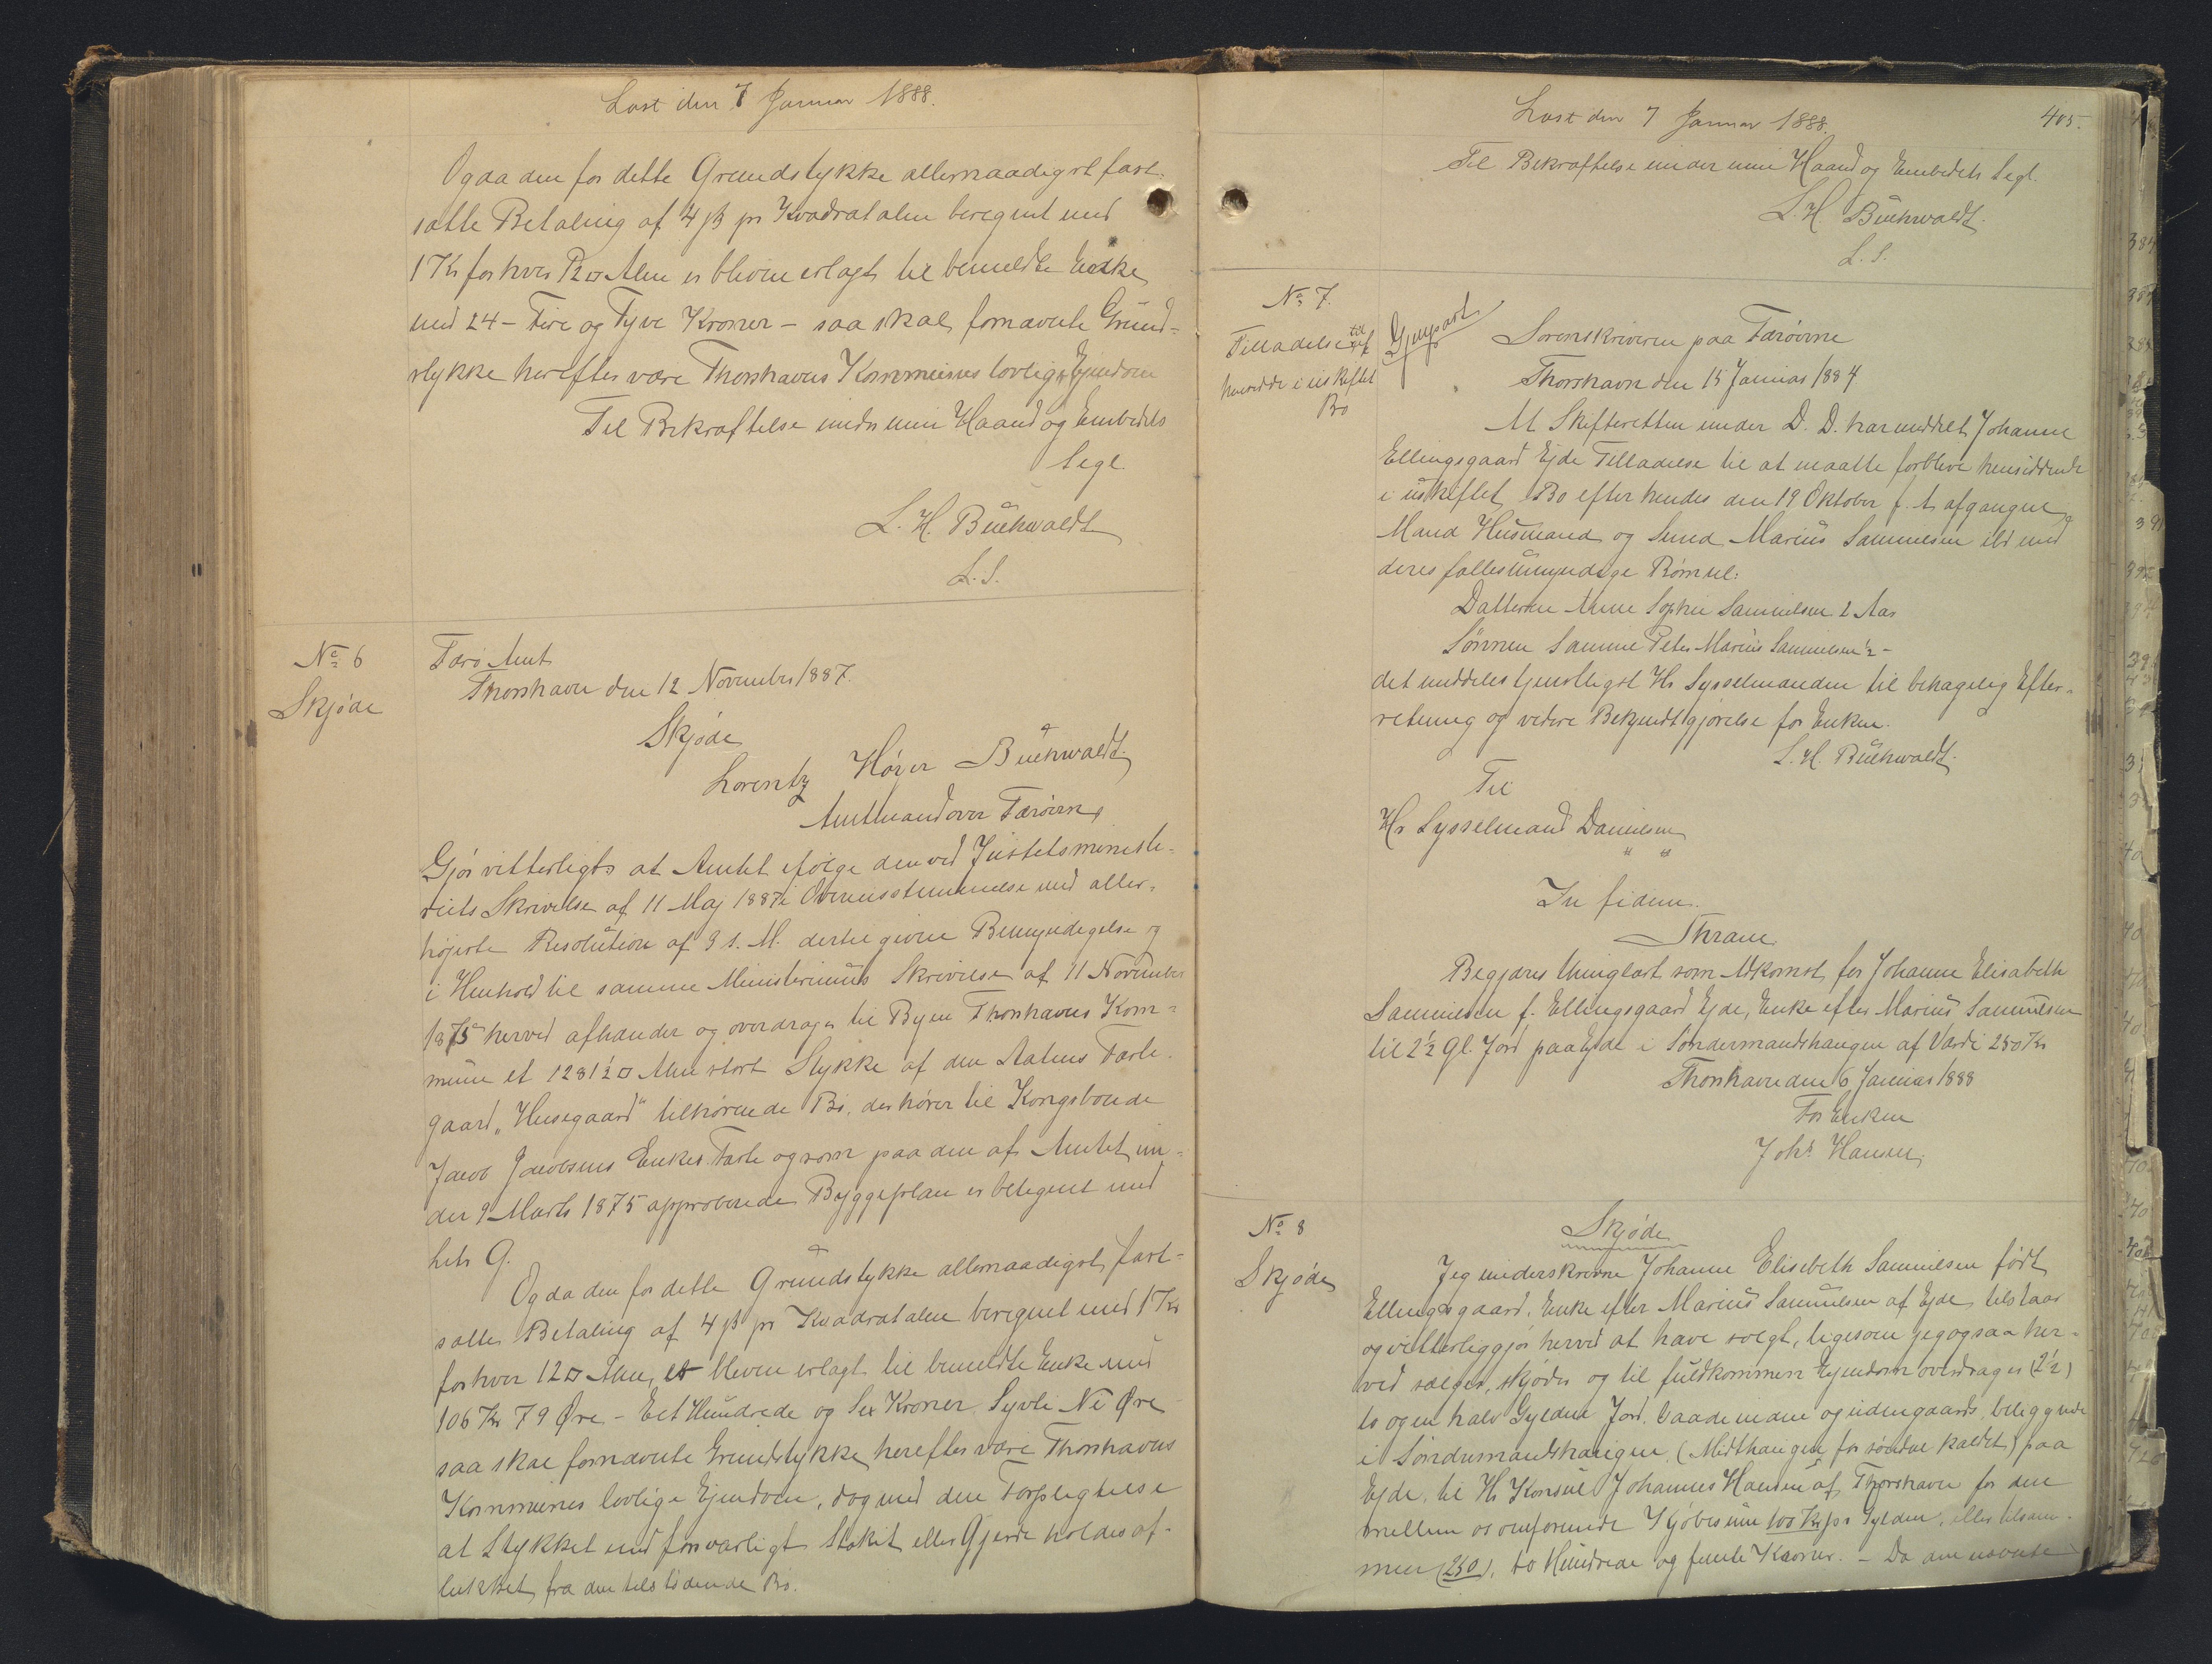 Læst den 7 Januar 1888.
Og da den for dette Grundstykke allernaadigst fast-
satte Betaling af 4 ß pr Kvadratalen beregnet med
1 Kr for hver 12 □ Alen er bleven erlagt til bemeldte Enke
med 24 - Fire og Tyve Kroner - saa skal fornævnte Grund-
stykke herefter være Thorshavns Kommunes lovlige Ejendom
Til Bekræftelse under min Haand og Embedets
Segl.
L. H. Buchwaldt
L. S.
No 6
Skjøde
Færø Amt
Thorshavn den 12 November 1887.
Skjøde
Lorentz Høyer Buchwaldt.
Amtmand over Færøerne
Gjør vitterligt at Amtet ifølge den ved Justitsministe-
riets Skrivelse af 11 Maj 1887 i Overensstemmelse med aller-
højeste Resolution af 3 s. M. dertil givne Bemyndigelse og
i Henhold til samme Ministeriums Skrivelse af 11 November
1875 herved afhænder og overdrager til Byen Thorshavns Kom-
mune et 1281½ □ Alen stort Stykke af den Statens Fæste-
gaard „Husegaard" tilhørende Bø, der hører til Kongsbonde
Jacob Jacobsens Enkes Fæste og som paa den af Amtet un-
der 9 Marts 1875 approberede Byggeplan er betegnet med
Litr G.
Og da den for dette Grundstykke allernaadigst fast-
satte Betaling af 4 ß pr Kvadratalen beregnet med 1 Kr
for hver 12 □ Alen, er bleven erlagt til bemeldte Enke med
106 Kr 79 Øre - Eet Hundrede og Sex Kroner Syvti Ni Øre
saa skal fornævnte Grundstykke herefter være Thorshavns
Kommunes lovlige Ejendom, dog med den Forpligtelse
at Stykket med forsvarligt Stakit eller Gjerde holdes af-
lukket fra den tilstødende Bø.
Læst den 7 Januar 1888.
405.
Til Bekræftelse under min Haand og Embedets Segl.
L. H. Buchwaldt.
L. S.
No 7.
Tilladelse til
hensidde i uskiftet
Bo
Gjenpart
Sorenskriveren paa Færøerne
Thorshavn den 15 Januar 1884
At Skifteretten under D. D. har meddelt Johanne
Ellingsgaard Ejde Tilladelse til at maatte forblive hensiddende
i uskiftet Bo efter hendes den 19 Oktober f. A. afgangne
Mand Husmand og Smed Marius Samuelsen ibd med
deres fælles umyndige Børn nl:
Datteren Anne Sophie Samuelsen 2 Aar
Sønnen Samme Peter Marius Samuelsen ½ -
det meddeles tjenstligst Hr Sysselmanden til behagelig Efter-
retning og videre Bekjendtgjørelse for Enken.
L. H. Buchwaldt.
Til
Hr Sysselmand Danielsen
" "
In fidem.
Thrane.
Begjæres thinglæst som Adkomst for Johanne Elisabeth
Samuelsen f. Ellingsgaard Ejde, Enke efter Marius Samuelsen
til 2½ Gl. Jord paa Ejde i Søndermandshaugen af Værdi 250 Kr
Thorshavn den 6 Januar 1888
For Enken
Johs Hansen.
No 8
Skjøde
Skjøde
Jeg underskrevne Johanne Elisebeth Samuelsen født
Ellingsgaard, Enke efter Marius Samuelsen af Ejde tilstaar
og vitterliggjør herved at have solgt, ligesom jeg ogsaa her-
ved sælger, skjøder og til fuldkommen Ejendom overdrager (2½)
to og en halv Gylden Jord, baade inden og udengaards, beliggende
i Søndermandshaugen (Midthaugen for søndre kaldet) paa
Ejde, til Hr Konsul Johannes Hansen af Thorshavn for den
mellem os omforenede Kjøbesum 100 Kr pr Gylden, eller tilsam-
men (250), to Hundrede og femti Kroner. - Da den nævnte